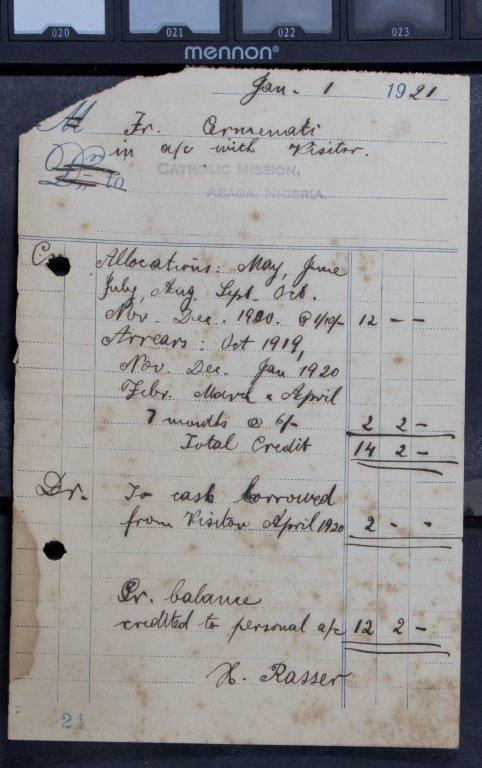 020 021 022 023
mennon®
Jan. 1 1921
M Fr. Ermenati
in a/c with Visitor.
Dr to
CATHOLIC MISSION,
ASABA, NIGERIA.
Cr. Allocations: May, June
July, Aug. Sept. Oct.
Nov. Dec. 1920. @ 1/10/- 12 - -
Arrears: Oct 1919,
Nov. Dec. Jan 1920
Febr. March & April
7 months @ 6/- 2 2 -
Total Credit 14 2 -
Dr. To cash borrowed
from Visitor April 1920 2 - -
Cr. balance
credited to personal a/c 12 2 -
H. Rasser
21